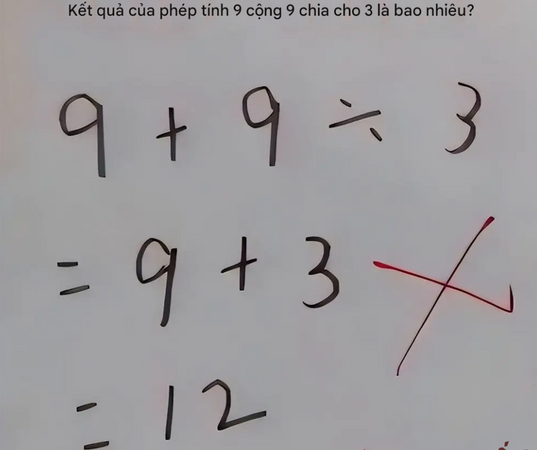 Kết quả của phép tính 9 cộng 9 chia cho 3 là bao nhiêu?
9 + 9 ÷ 3
= 9 + 3
= 12